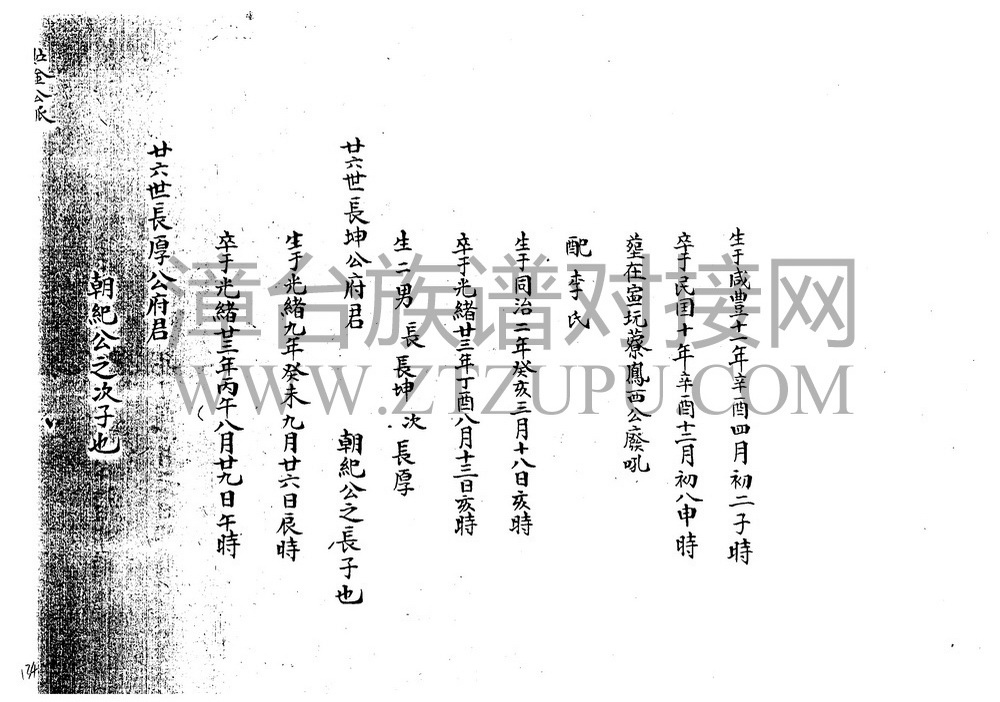 生于咸豐十一年辛酉四月初二子時
卒于民国十年辛酉十二月初八申時
在寅坑寮鳳西公廢吼
配李氏
生于同治二年癸亥三月十八日亥時
卒于光緒廿三年丁酉八月十三日亥時
生二男 長 長坤 次 長厚
廿六世長坤公府君 朝紀公之長子也
生于光緒九年癸未九月廿六日辰時
卒于光緒廿三年丙午八月廿九日午時
廿六世長厚公府君
朝紀公之次子也
金公派
134
漳台族谱对接网
WWW.ZTZUPU.COM